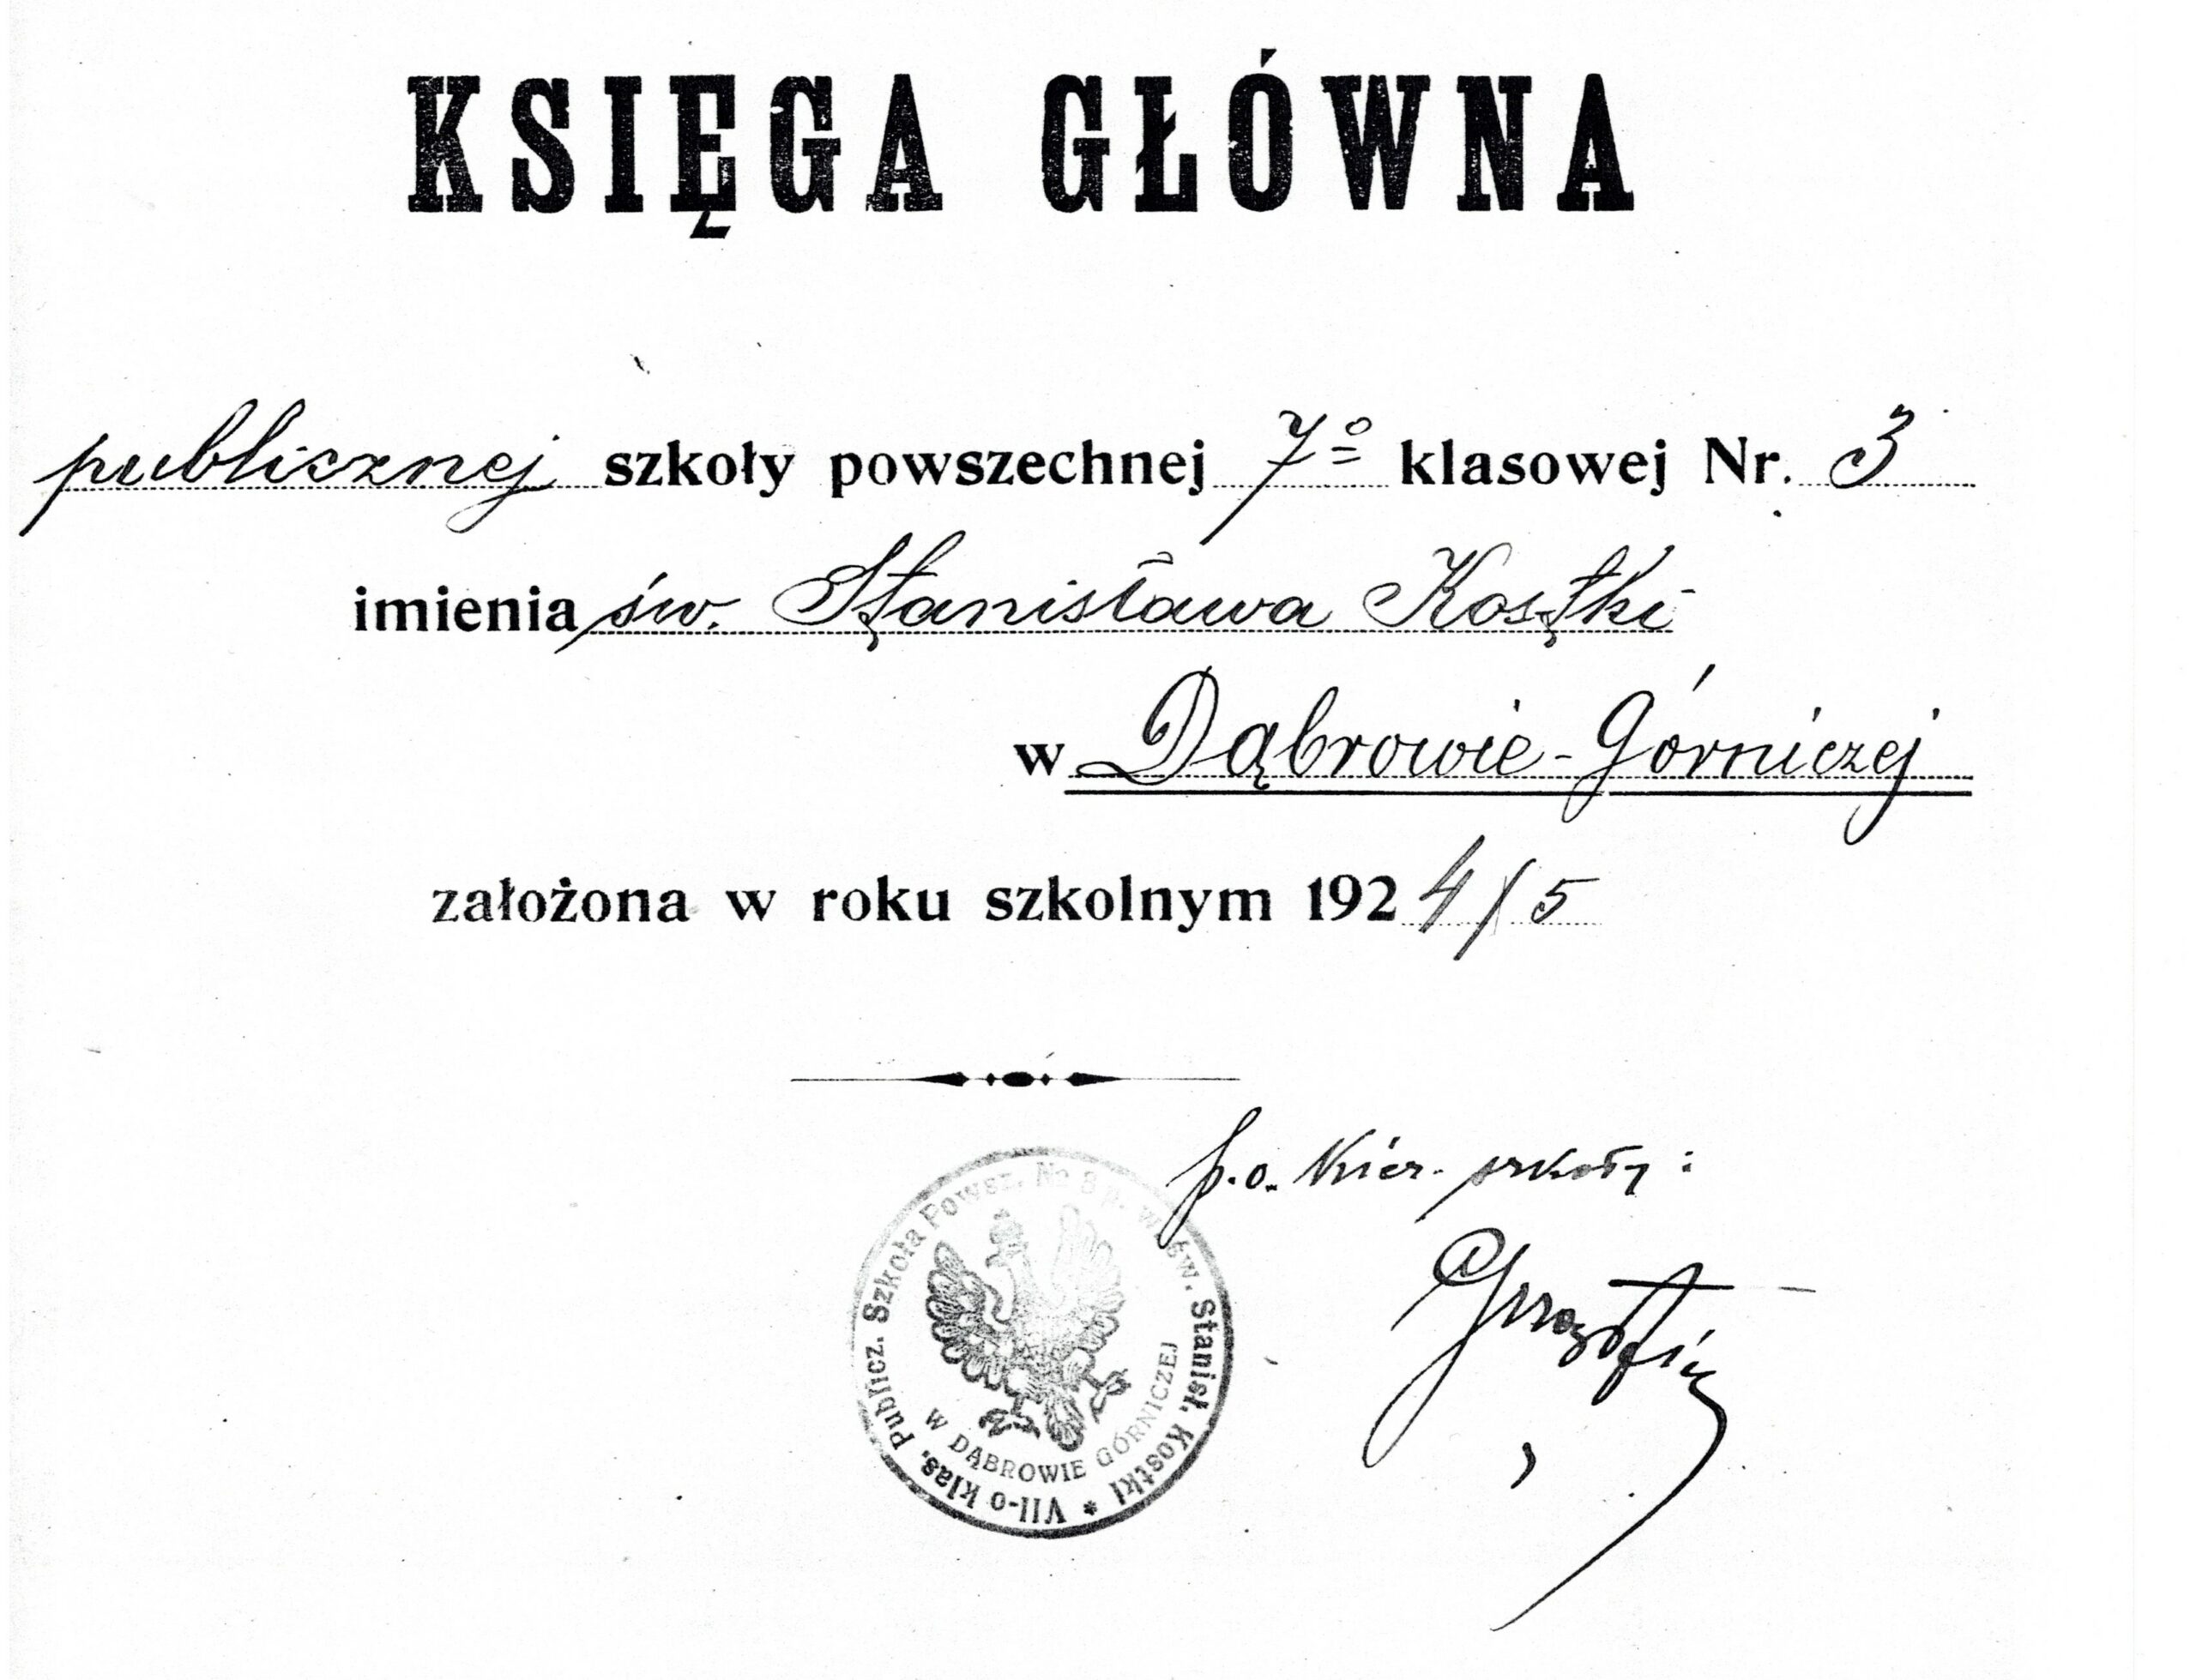 KSIĘGA GŁÓWNA
publicznej szkoły powszechnej 7º klasowej Nr. 3
imienia św. Stanisława Kostki
w Dąbrowie-Górniczej
założona w roku szkolnym 1924/5
p.o. Kier. szkoły:
VII-o klas. Publicz. Szkoła Powsz. № p. w. św. Stanisł. Kostki *
W DĄBROWIE GÓRNICZEJ